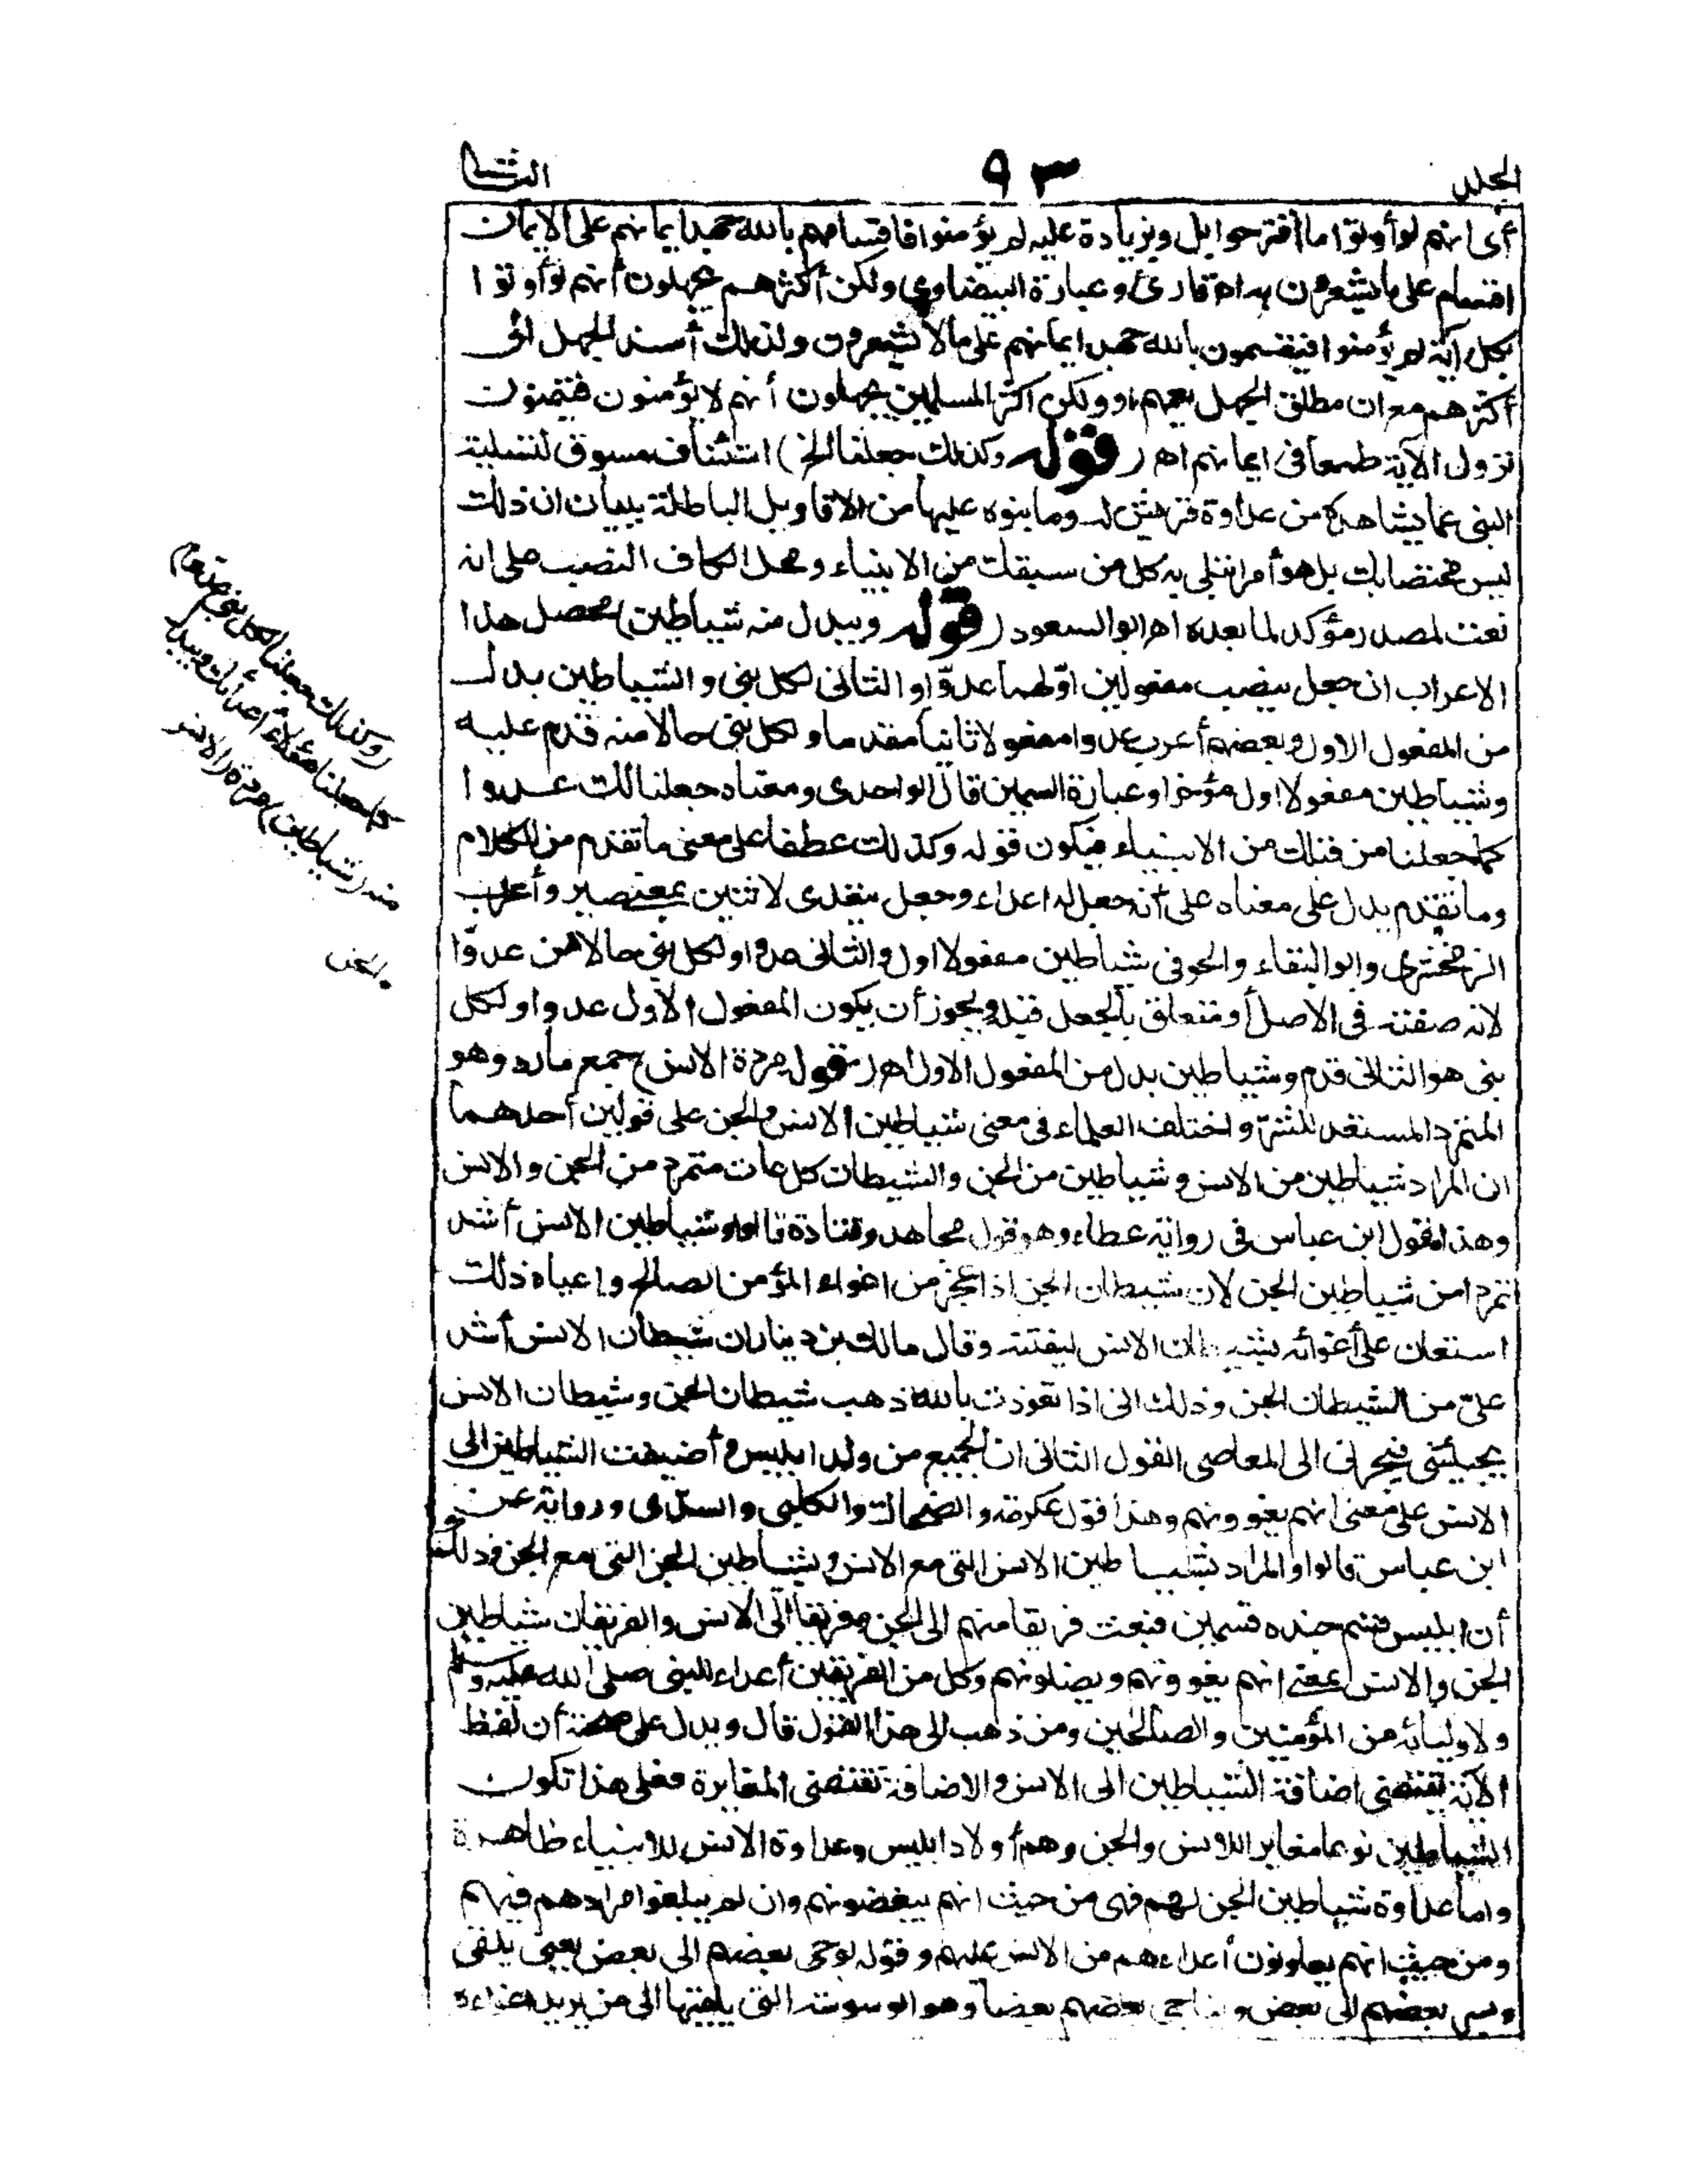 الجلد
٩٣
الثانى
أى انهم لو أوتوا ما اقترحوا بل وبزيادة عليه لم يؤمنوا فاقسامهم بالله جهد ايمانهم على الايمان
اقسام على ما يشعرون به اه قارى وعبارة البيضاوى ولكن أكثرهم يجهلون أنهم لو أوتوا
بكل اية لم يؤمنوا فيقسمون بالله جهد ايمانهم على ما لا يشعرون ولذلك أسند الجهل الى
أكثرهم مع ان مطلق الجهل يعمهم او ولكن اكثر المسلمين يجهلون أنهم لا يؤمنون فيتمنون
نزول الآية طمعا فى ايمانهم اه (قوله وكذلك جعلنا الخ) استئناف مسوق لتسلية
النبى عما يشاهده من عداوة قريش له وما بنوه عليها من الاقاويل الباطلة ببيان ان ذلك
ليس مختصا بك بل هو أمر ابتلى به كل من سبقك من الانبياء ومحل الكاف النصب على انه
نعت لمصدر مؤكد لما بعده اه ابو السعود (قوله ويبدل منه شياطين) محصل هذا
الاعراب ان جعل ينصب مفعولين اوّلهما عدوّا والثانى لكل نبى والشياطين بدل
من المفعول الاول وبعضهم أعرب عدوا مفعولا ثانيا مقدما ولكل نبى حالا منه قدم عليه
وشياطين مفعولا اول مؤخرا وعبارة السمين قال الواحدى ومعناه جعلنا لك عدوا
كما جعلنا من قبلك من الانبياء فيكون قوله وكذلك عطفا على معنى ما تقدم من الكلام
وما تقدم يدل على معناه على أنه جعل له اعداء وجعل يتعدى لاثنين بمعنى صير وأعرب
الزمخشرى وابو البقاء والحوفى شياطين مفعولا اول والثانى عدوا ولكل نبى حالا من عدوّا
لانه صفته فى الاصل أو متعلق بالجعل قبله ويجوز أن يكون المفعول الأول عدوا ولكل
نبى هو الثانى قدم وشياطين بدل من المفعول الاول اهـ (قوله مردة الانس) جمع مارد وهو
المتمرد المستعد للشرّ واختلف العلماء فى معنى شياطين الانس والجن على قولين أحدهما
ان المراد شياطين من الانس وشياطين من الجن والشيطان كل عات متمرد من الجن والانس
وهذا قول ابن عباس فى رواية عطاء وهو قول مجاهد وقتادة قالوا وشياطين الانس أشد
تمردا من شياطين الجن لان شيطان الجن اذا عجز من اغواء المؤمن الصالح واعياه ذلك
استعان على أغوائه بشيطان الانس ليفتنه وقال مالك بن دينار ان شيطان الانس أشد
علىّ من الشيطان الجن وذلك انى اذا تعوذت بالله ذهب شيطان الجن وشيطان الانس
يجيئنى فيجرنى الى المعاصى القول الثانى ان الجميع من ولد ابليس وأضيفت الشياطين الى
الانس على معنى انهم يغوونهم وهذا قول عكرمة والضحاك والكلبى والسدّى ورواية عن
ابن عباس قالوا والمراد بشياطين الانس التى مع الانس وبشياطين الجن التى مع الجن وذلك
أن ابليس قسم جنده قسمين فبعث فريقا منهم الى الجن وفريقا الى الانس والفريقان شياطين
الجن والانس بمعنى انهم يغوونهم ويضلونهم وكل من الفريقين أعداء للنبى صلى الله عليه وسلم
ولاوليائه من المؤمنين والصالحين ومن ذهب الى هذا القول قال ويدل على صحته أن لفظ
الآية يقتضى اضافة الشياطين الى الانس والاضافة تقتضى المغايرة فعلى هذا تكون
الشياطين نوعا مغايرا للانس والجن وهم أولاد ابليس وعداوة الانس للانبياء ظاهرة
واما عداوة شياطين الجن لهم فهى من حيث انهم يبغضونهم وان لم يبلغوا مرادهم فيهم
ومن حيث انهم يعاونون أعداءهم من الانس عليهم وقوله يوحى بعضهم الى بعض يعنى يلقى
ويسر بعضهم الى بعض ويناجى بعضهم بعضا وهو الوسوسة التى يلقيها الى من يريد اغواءه
(وكذلك جعلنا لكل نبى عدوا)
كما جعلنا هؤلاء أعداءك ويبدل
منه (شياطين) مردة (الانس
والجن